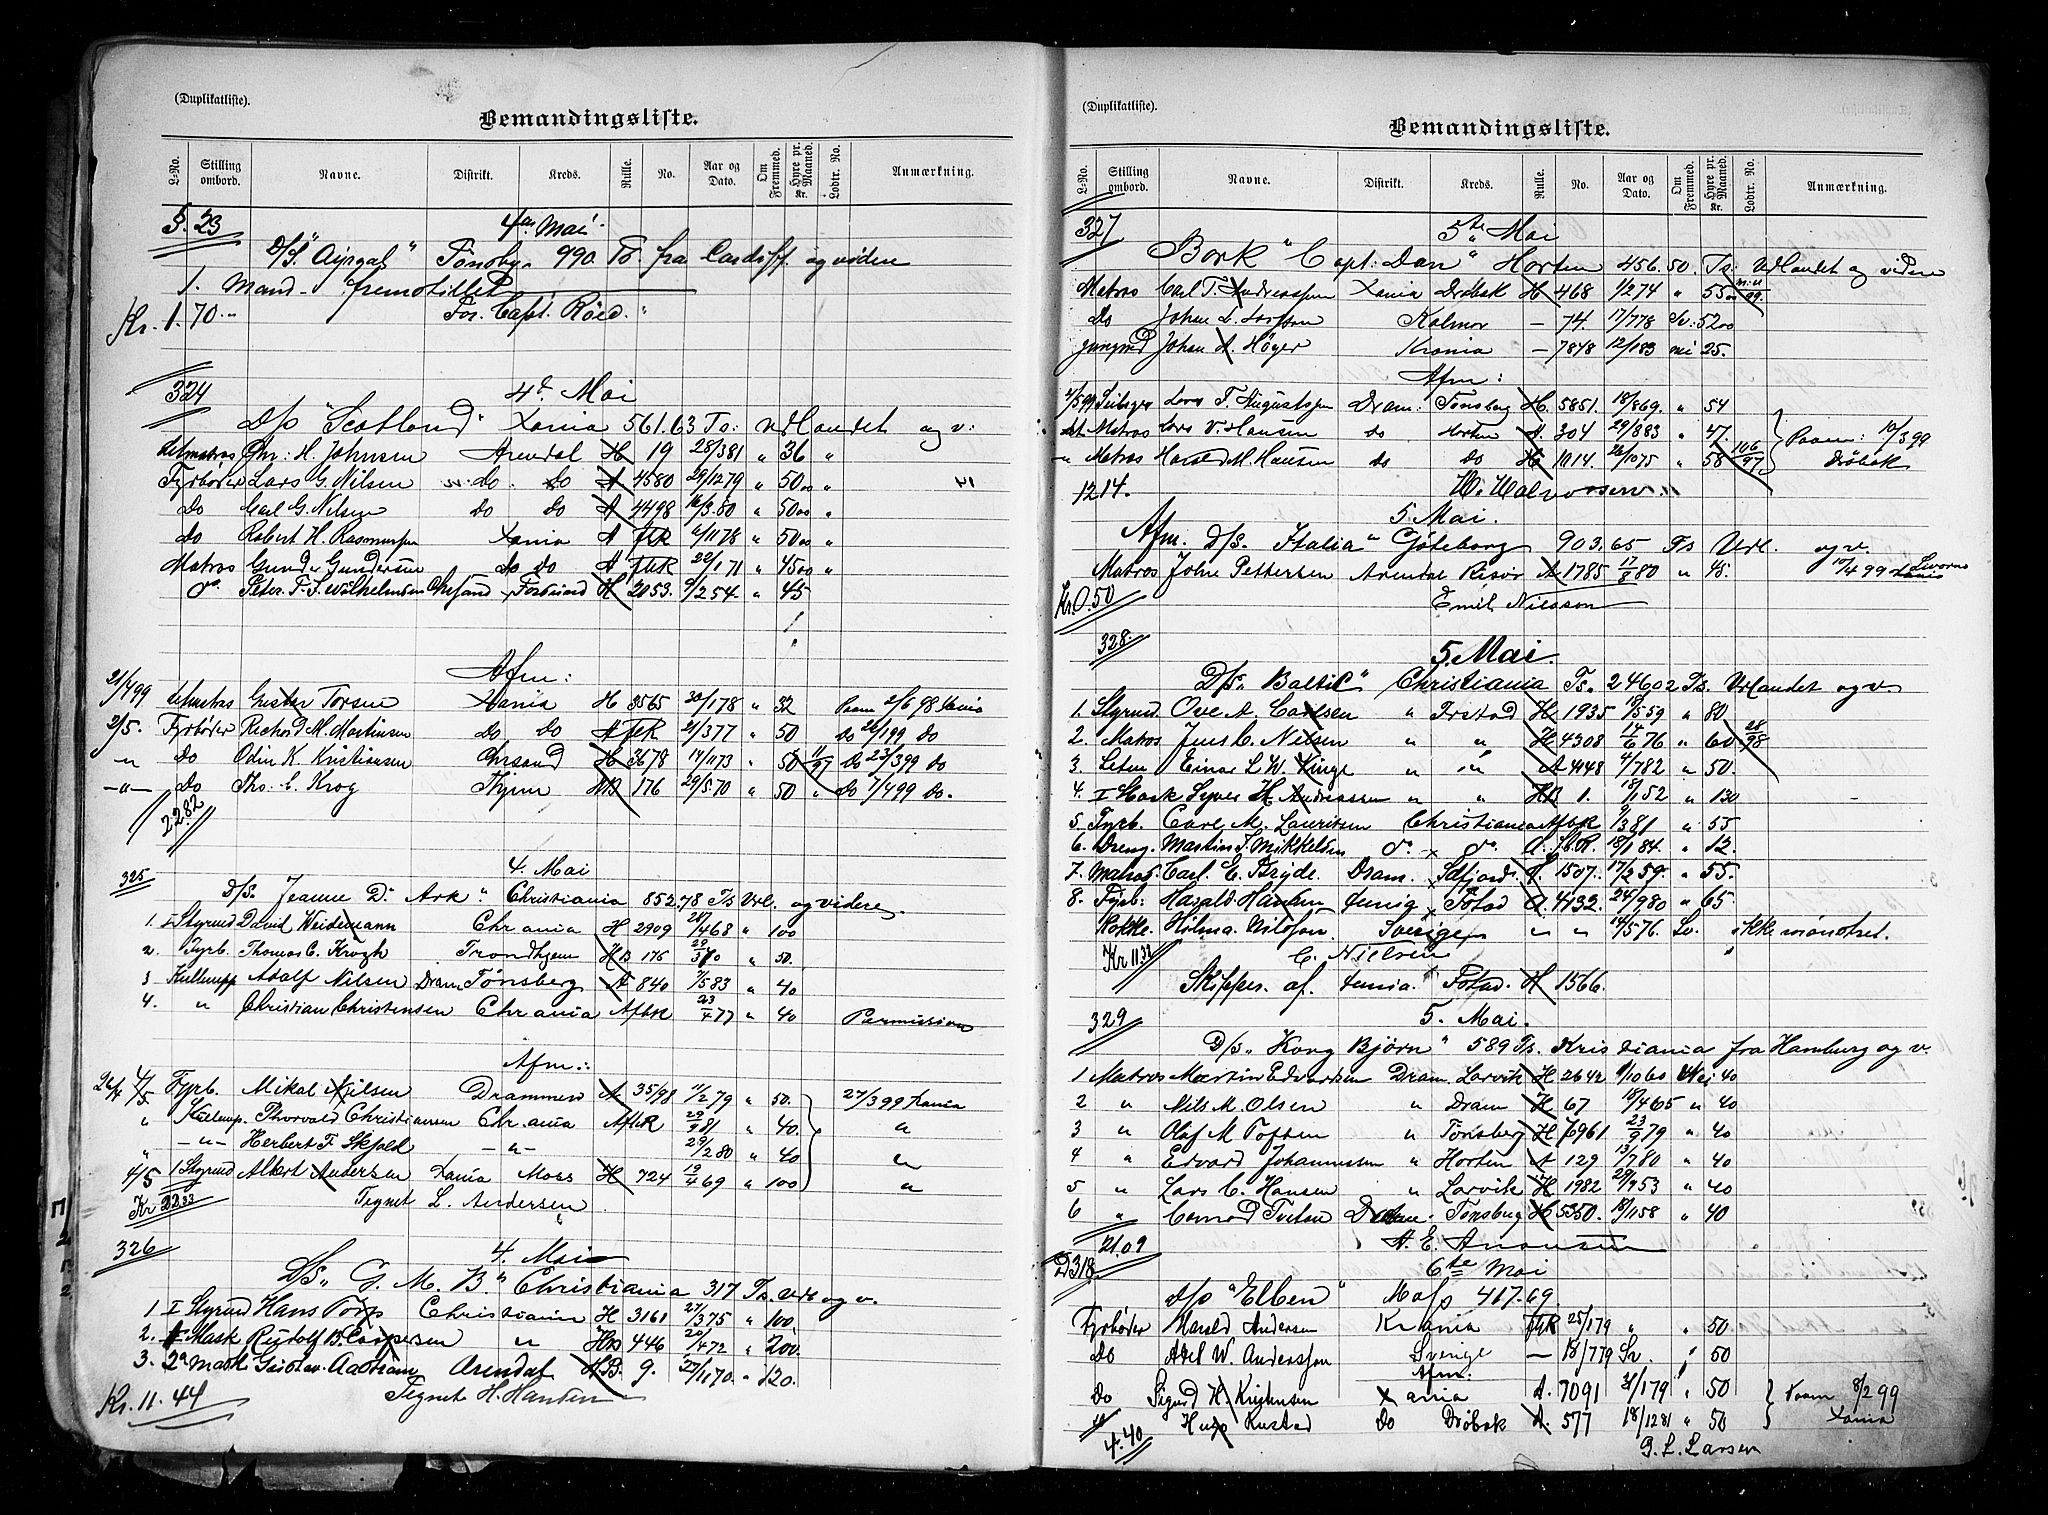 (Duplikatliste).
Bemandingsliste.
L-No. Stilling ombord. Navne. Distrikt. Kreds. Rulle. No. Aar og Dato. Om Fremmed. Hyre pr. Maaned. Kr. Lodtr. No. Anmærkning.
§. 23 4de Mai
D/S 990 To fra Cardiff og videre
1. Mand fremstillet
Kr. 1.70 For Capt. Röed.
324 4d Mai
D/s "Scotland" Xania 561.63 Ts: Udlandet og v:
Letmatros Chr: H. Johnsen Arendal H 19 28/3 81 " 36 "
Fyrböder Lars G. Nilsen do. do A 4580 29/12 79 " 50 00 "
do Carl G. Nilsen do do A 4498 16/3 80 " 50 00 "
do Robert H. Rasmussen Xania A fbk 6/11 78 " 50 00 "
Matros Gunder Gundersen do do A fbk 22/1 71 " 45 00 "
do Peter T. S. Wilhelmsen Chrsand Farsund H 2053. 9/2 54. " 45
Afm:
21/4 99 Letmatros Torsen Xania H 3565 30/1 78 " 32 Paam 2/6 98 Xania
2/5. Fyrböder Richard M. Martinsen do do Afbk 21/3 77 " 50 do 26/1 99 do
-"- do Odin K. Kristiansen Chrsand H 3678 14/11 73 " 50 11/97 do 23/3 99 do
-"- do Ths. C. Krog Thjem HB 176 29/5 70 " 50 " do 7/4 99 do.
22.82
325 4. Mai
D/S. Jeanne D. Ark " Christiania 852.78 Ts Udl. og videre.
1. I Styrmd David Weidemann Chr.ania H 2909 28/4 68 " 100
2. Fyrb. Thomas C. Krogh Trondhjem HB 176 29/5 70 " 50.
3 Kullemp Adolf Nilsen Dram Tönsberg A 840 7/5 83 " 40
4. " Christian Christensen Chr.ania Afbk 23/4 77 " 40 Permission
Afm:
26/4 4/5 Fyrb. Mikal Nilsen Drammen A 35/98 11/2 79 " 50. 27/3 99 Xania
" Kullemp. Thorvald Christiansen Chr.ania Afbk 29/9 81 " 40. "
" -"- Herbert F. Skjold -"- 29/2 80 " 40 "
4/5 I Styrmd Albert Andersen Xania Moss H 724 19/4 69 " 100 "
Kr 22 33 Tegnet L. Andersen
326 4. Mai
D/S. " G. M. B." Christiania 317 Ts. Udl og v.
1. I Styrmd Hans Torp Christiania H 3161 27/3 75 " 100.
2. I Mask Rudolf B. Caspersen " HB 446 20/4 72 " 200.
3. 2d Mask Gustav Arendal HB. 9. 27/11 70. " 120.
Kr. 11.44 Tegnet H. Hansen
(Duplikatliste).
Bemandingsliste.
L-No. Stilling ombord. Navne. Distrikt. Kreds. Rulle. No. Aar og Dato. Om Fremmed. Hyre pr. Maaned. Kr. Lodtr. No. Anmærkning.
327 5te Mai
Bark "Capt: Dan" Horten 456.50 Ts: Udlandet og videre
Matros Carl T. Andreassen Xania Dröbak H 468 1/2 74 " 55 00
do Johan L. Larsson Kalmar - 74. 17/7 78 Sv: 52 00
Jungmd Johan A. Höyer Krania - 7848 12/1 83 nei 25.
Afm:
Lars T. Augustsen Dram: Tönsberg H. 5851. 18/8 69. " 54
dt Matros Lars V. Hansen do Horten A. 304 29/8 83 " 47. Paam: 10/3 99
-"- Matros Harald M. Hansen do do H 1014. 26/10 75 " 58 Dröbak
12 14. W. Halvorsen.
5. Mai.
Afm. D/S. Italia" Göteborg 903.65 Ts Udl. og v.
Matros John Pettersen Arendal Risör A 1785 17/8 80 " 45. 10/4 99 Livorno
Kr. 0.50 Emil Nilsson
328. 5. Mai.
D/S. " Baltic" Christiania Ts. 246 02 Ts. Udlandet og v.
1. Styrmd. Ove A. Carlsen " Frstad H 1935 19/5 59 " 80
2. Matros Jens C. Nilsen " " H 4308 14/6 76 " 60 28/98
3. Letm Einar L. W. Kinge " " A 4148 4/7 82 " 50.
4. I Mask Syver H. Andreassen " " HB 1. 18/1 52 " 130
5. Fyrb. Carl M. Lauritsen Christiania Afbk 9/3 81 " 55
6. Dreng. Martin F. Mikkelsen do do A. fl.R. 18/1 84. " 12.
7. Matros. Carl E. Bryde Dram. Sdfjord A. 1507. 17/2 59. " 55.
8. Fyrb: Harald Hansen Xania Fstad A. 4132. 24/9 80 " 65.
Kokke. Hilma Nilsson Sverige " " 14/5 76. Sv. " ikke mönstret.
Kr 11.32 C. Nielsen
Skipper af Xania Fstad. H 1566.
329 5. Mai.
D/S. " Kong Björn " 589 Ts. Kristiania fra Hamburg og v.
1 Matros Martin Edvardsen Dram. Larvik H 2642 9/10 60 Nei 40
2 " Nils M. Olsen " Dram H 67 18/4 65 " 40
3 " Olaf M Toften " Tönsberg H 6961 23/9 79 " 40
4 " Edvard Johannessen " Horten A 129 13/7 80 " 40
5 " Lars C. Hansen " Larvik H 1982 29/9 53 " 40
6 " Conrad Tveten Dram Tönsberg H 5350. 18/11 58 " 40
21.09 A. E. Aronsen
D 318. 6te Mai
D/S "Elben" Moss 467.69.
Fyrböder Harald Andersen Krania fbk 25/1 79 " " 50
do Axel W. Andersson Sverige - 18/7 79 Sv. " 50
Afm.
do Sigurd H. Kristensen Xania A. 7091 31/1 79 " 50 Paam 8/2 99
do Hugo Rustad do Dröbak A. 577 18/12 81 " 50 Xania
4.40 G. L. Larsen